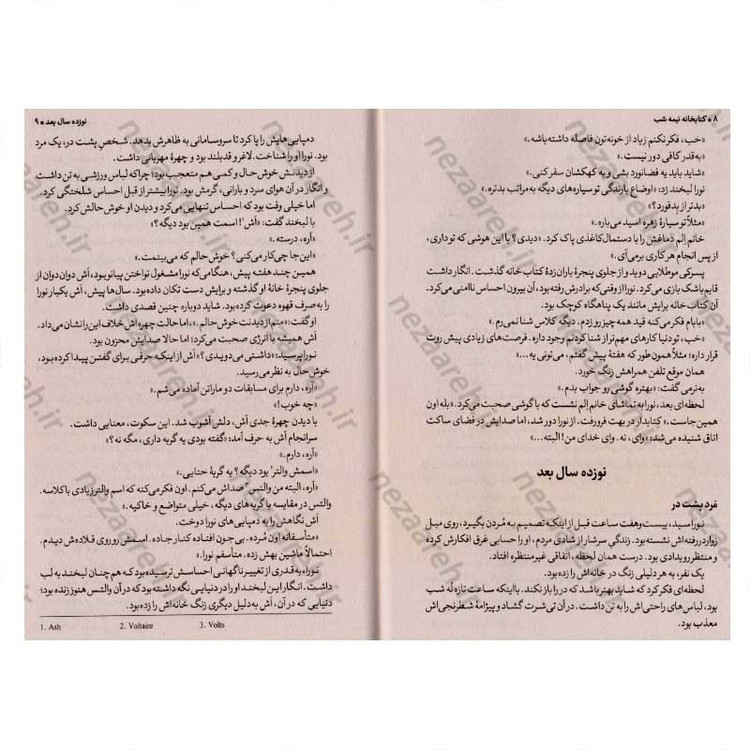 ۸ • کتابخانه نیمه شب
«خب، فکر نکنم زیاد از خونه‌تون فاصله داشته باشه.»
«به قدر کافی دور نیست.»
«شاید باید یه فضانورد بشی و به کهکشان سفر کنی.»
نورا لبخند زد: «اوضاع بارندگی تو سیاره‌های دیگه به مراتب بدتره.»
«بدتر از بدفورد؟»
«مثلاً تو سیارهٔ زهره اسید می‌باره.»
خانم إلم دماغش را با دستمال کاغذی پاک کرد. «دیدی؟ با این هوشی که تو داری،
از پس انجام هر کاری برمی‌آی.»
پسرکی موطلایی دوید و از جلوی پنجرهٔ باران‌زدهٔ کتاب خانه گذشت. انگار داشت
قایم باشک بازی می‌کرد. نورا از وقتی که برادرش رفته بود، آن بیرون احساس ناامنی می‌کرد.
آن کتاب خانه برایش مانند یک پناهگاه کوچک بود.
«بابام فکر می‌کنه قید همه چیز رو زدم. دیگه کلاس شنا نمی‌رم.»
«خب، تو دنیا کارهای مهم‌تر از شنا کردنم وجود داره. فرصت‌های زیادی پیش روت
قرار داره؛ مثلاً همون‌طور که هفتهٔ پیش گفتم، می‌تونی یه...»
همان موقع تلفن همراهش زنگ خورد.
به نرمی گفت: «بهتره گوشی رو جواب بدم.»
لحظه‌ای بعد، نورا به تماشای خانم إلم نشست که با گوشی صحبت می‌کرد. «بله اون
همین‌جاست.» کتابدار در بهت فرو رفت. از نورا دور شد، اما صدایش در فضای ساکت
اتاق شنیده می‌شد: «وای، نه. وای خدای من! البته...»
نوزده سال بعد
مرد پشت در
نورا سید، بیست و هفت ساعت قبل از اینکه تصمیم به مُردن بگیرد، روی مبل
زوار دررفته‌اش نشسته بود. زندگیِ سرشار از شادی مردم، او را حسابی غرق افکارش کرده
و منتظر رویدادی بود. درست همان لحظه، اتفاقی غیرمنتظره افتاد.
یک نفر، به هر دلیلی زنگ در خانه‌اش را زده بود.
لحظه‌ای فکر کرد که شاید بهتر باشد که در را باز نکند. با اینکه ساعت تازه نُه شب
بود، لباس‌های راحتی‌اش را به تن داشت. در آن تی‌شرت گشاد و پیژامهٔ شطرنجی‌اش
معذب بود.
نوزده سال بعد • ۹
دمپایی‌هایش را پا کرد تا سر و سامانی به ظاهرش بدهد. شخصِ پشت در، یک مرد
بود. نورا او را شناخت. لاغر و قدبلند بود و چهرهٔ مهربانی داشت.
از دیدنش خوش‌حال و کمی هم متعجب بود؛ چراکه لباس ورزشی به تن داشت
و انگار در آن هوای سرد و بارانی، گرمش بود. نورا بیشتر از قبل احساس شلختگی کرد.
اما خیلی وقت بود که احساس تنهایی می‌کرد و دیدن او خوش‌حالش کرد.
با لبخند گفت: «اَش¹! اسمت همین بود دیگه؟»
«آره، درسته.»
«این‌جا چی‌کار می‌کنی؟ خوش‌حالم که می‌بینمت.»
همین چند هفته پیش، هنگامی‌که نورا مشغول نواختن پیانو بود، اَش دوان‌دوان از
جلوی پنجرهٔ خانهٔ او گذشته و برایش دست تکان داده بود. سال‌ها پیش، اَش یک‌بار نورا
را به صرف قهوه دعوت کرده بود. شاید دوباره چنین قصدی داشت.
او گفت: «منم از دیدنت خوش‌حالم.»، اما حالت چهره‌اش خلاف این را نشان می‌داد.
اَش همیشه با انرژی صحبت می‌کرد؛ اما حالا صدایش محزون بود.
نورا پرسید: «داشتی می‌دویدی؟» اَش از اینکه حرفی برای گفتن پیدا کرده بود،
خوش‌حال به نظر می‌رسید.
«آره، دارم برای مسابقات دو ماراتن آماده می‌شم.»
«چه خوب!»
با دیدن چهرهٔ جدی اَش، دلش آشوب شد. این سکوت، معنایی داشت.
سرانجام اَش به حرف آمد: «گفته بودی یه گربه داری، مگه نه؟»
«آره، دارم.»
«اسمش والتر² بود دیگه؟ یه گربهٔ حنایی.»
«آره، البته من والتس³ صداش می‌کنم. اون فکر می‌کنه که اسم والتر زیادی باکلاسه.
والتس در مقایسه با گربه‌های دیگه، خیلی متواضع و خاکیه.»
اَش نگاهش را به دمپایی‌های نورا دوخت.
«متأسفانه اون مُرده. بی‌جون افتاده کنار جاده. اسمش رو روی قلاده‌ش دیدم.
احتمالاً ماشین بهش زده. متأسفم نورا.»
نورا، به قدری از تغییر ناگهانی احساسش ترسیده بود که همچنان لبخند به لب
داشت. انگار این لبخند او را در دنیایی نگه داشته بود که در آن والتس هنوز زنده بود؛
دنیایی که در آن، اَش به دلیل دیگری زنگ خانه‌اش را زده بود.
1. Ash 2. Voltaire 3. Volts
nezaareh.ir